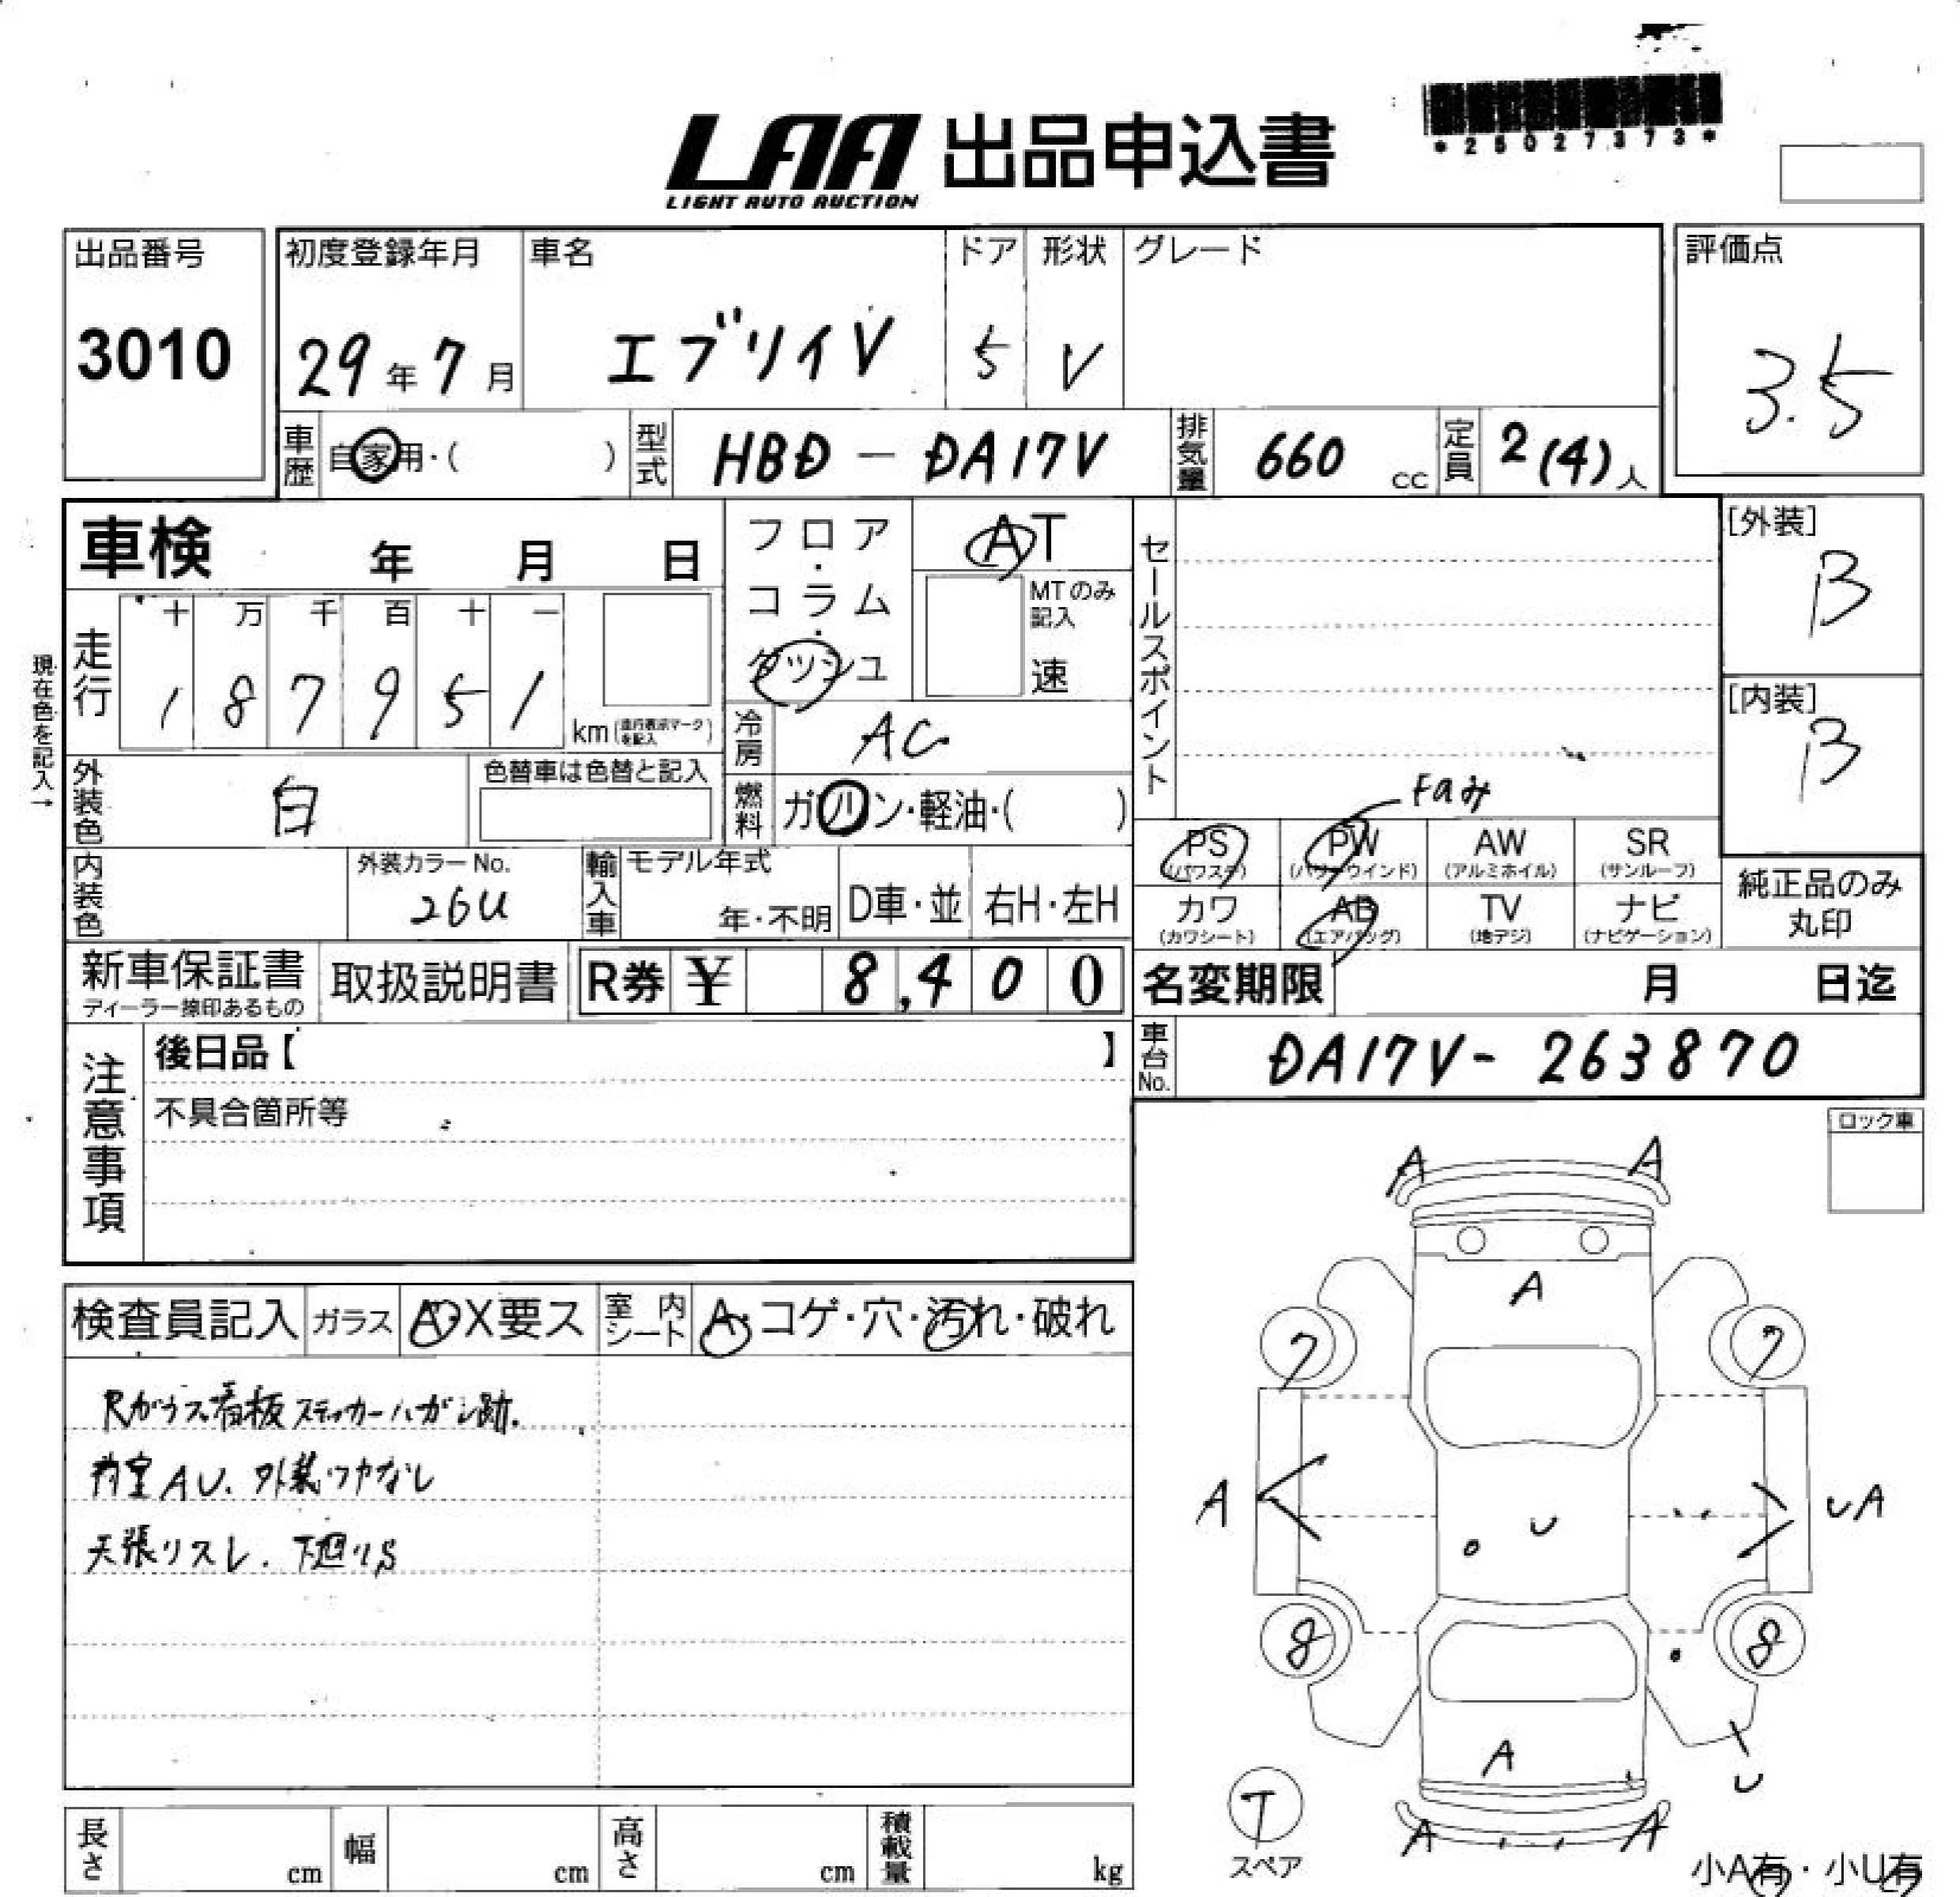 LAA 出品申込書
LIGHT AUTO AUCTION
*25027373*
出品番号
3010
初度登録年月
29年7月
車名
エブリイV
ドア
5
形状
V
グレード
評価点
3.5
車歴
自家用・( )
型式
HBD-DA17V
排気量
660 cc
定員
2(4)人
車検 年 月 日
フロア・コラム・ダッシュ
AT
MTのみ記入
速
セールスポイント
[外装]
B
[内装]
B
現在色を記入→
走行
十 万 千 百 十 一
1 8 7 9 5 1
km(走行表示マークを記入)
冷房
AC
外装色
白
色替車は色替と記入
燃料
ガソリン・軽油・( )
Faみ
PS (パワステ)
PW (パワーウインド)
AW (アルミホイル)
SR (サンルーフ)
カワ (カワシート)
AB (エアバッグ)
TV (地デジ)
ナビ (ナビゲーション)
純正品のみ丸印
内装色
外装カラーNo.
26U
輸入車
モデル年式
年・不明
D車・並
右H・左H
新車保証書
ディーラー捺印あるもの
取扱説明書
R券 ¥ 8,400
名変期限 月 日迄
車台No.
DA17V-263870
注意事項
後日品【 】
不具合箇所等
ロック車
検査員記入
ガラス
A・X要ス
室内シート
A・コゲ・穴・汚れ・破れ
Rガラス看板ステッカーハガシ跡.
荷室AU. 外装ワカなし
天張リスレ. 下廻りS
A A
A
7 7
A
U
UA
8 8
A
U
A A
T
スペア
小A有・小U有
長さ cm
幅 cm
高さ cm
積載量 kg